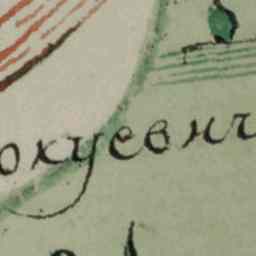 окуевич